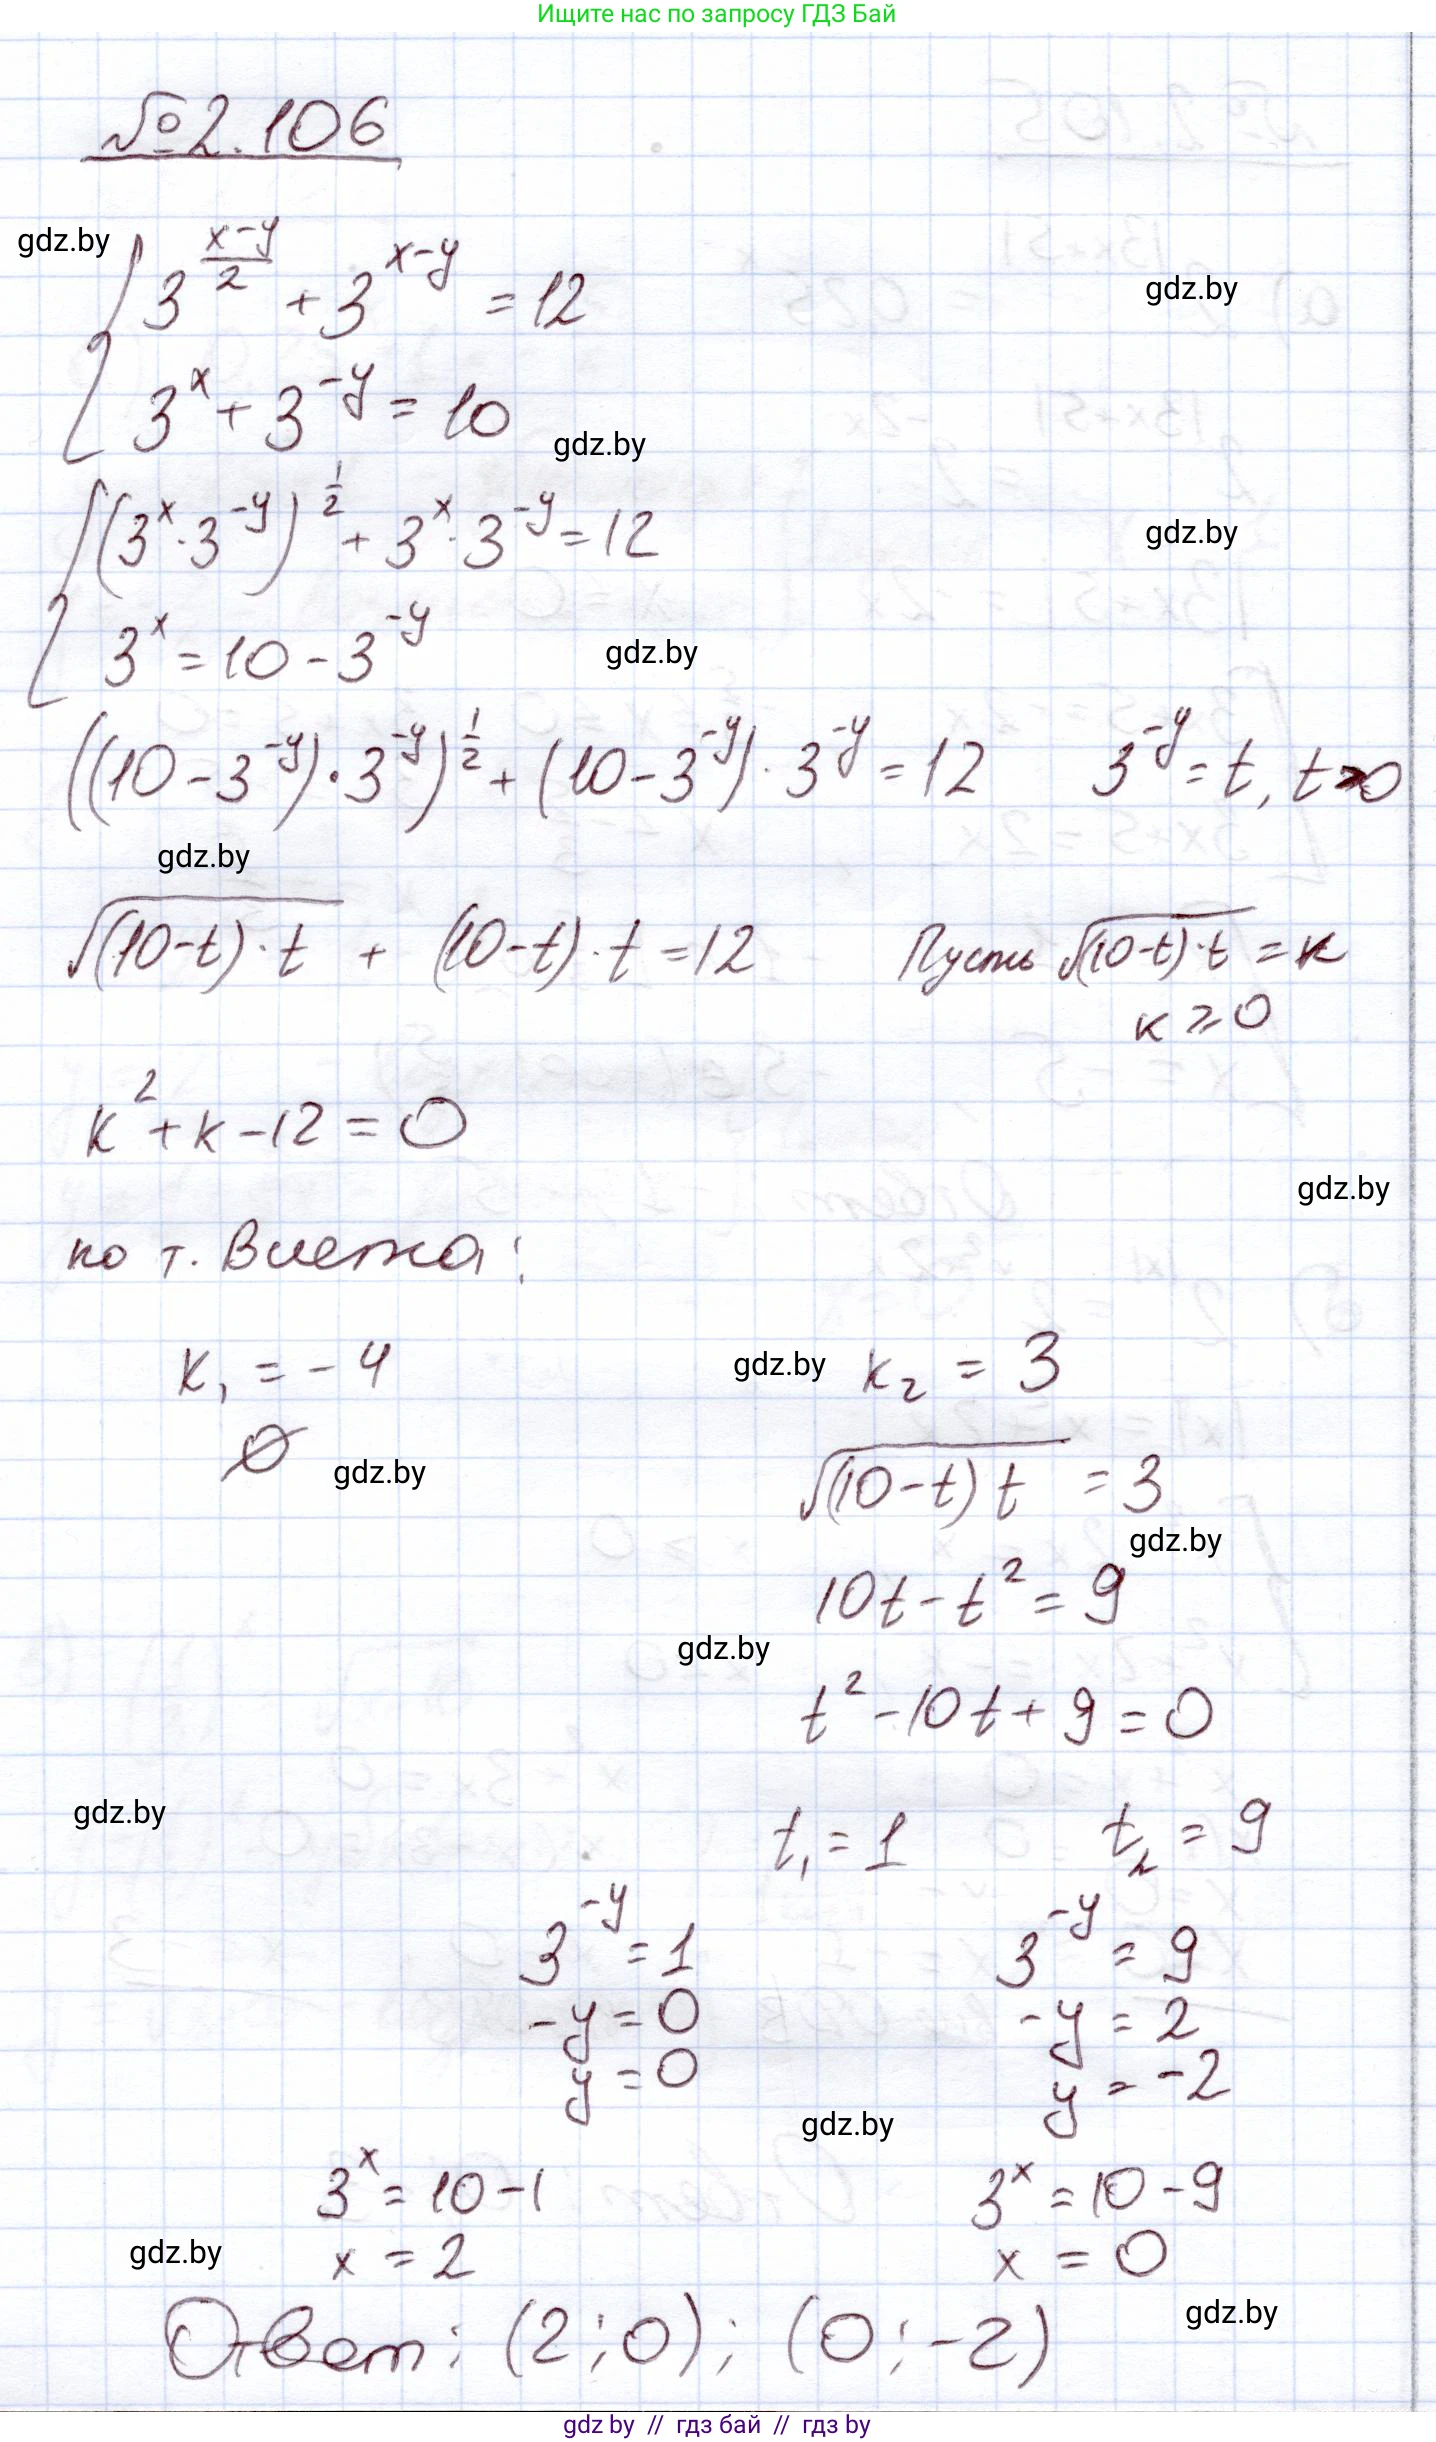 Ищите нас по запросу ГДЗ Бай
№2.106
gdz.by
3^((x-y)/2) + 3^(x-y) = 12
gdz.by
3^x + 3^(-y) = 10
gdz.by
(3^x · 3^(-y))^(1/2) + 3^x · 3^(-y) = 12
gdz.by
3^x = 10 - 3^(-y)
gdz.by
((10 - 3^(-y)) · 3^(-y))^(1/2) + (10 - 3^(-y)) · 3^(-y) = 12     3^(-y) = t, t > 0
gdz.by
√((10-t)·t) + (10-t)·t = 12     Пусть √((10-t)·t) = k
k ≥ 0
k² + k - 12 = 0
gdz.by
по т. Виета:
k₁ = -4     gdz.by     k₂ = 3
∅     gdz.by     √((10-t)t) = 3
gdz.by
10t - t² = 9
gdz.by
t² - 10t + 9 = 0
gdz.by
t₁ = 1     t₂ = 9
3^(-y) = 1     3^(-y) = 9
-y = 0     -y = 2
y = 0     y = -2
gdz.by
3^x = 10 - 1     3^x = 10 - 9
gdz.by
x = 2     x = 0
gdz.by
Ответ: (2;0); (0;-2)
gdz by // гдз бай // гдз by